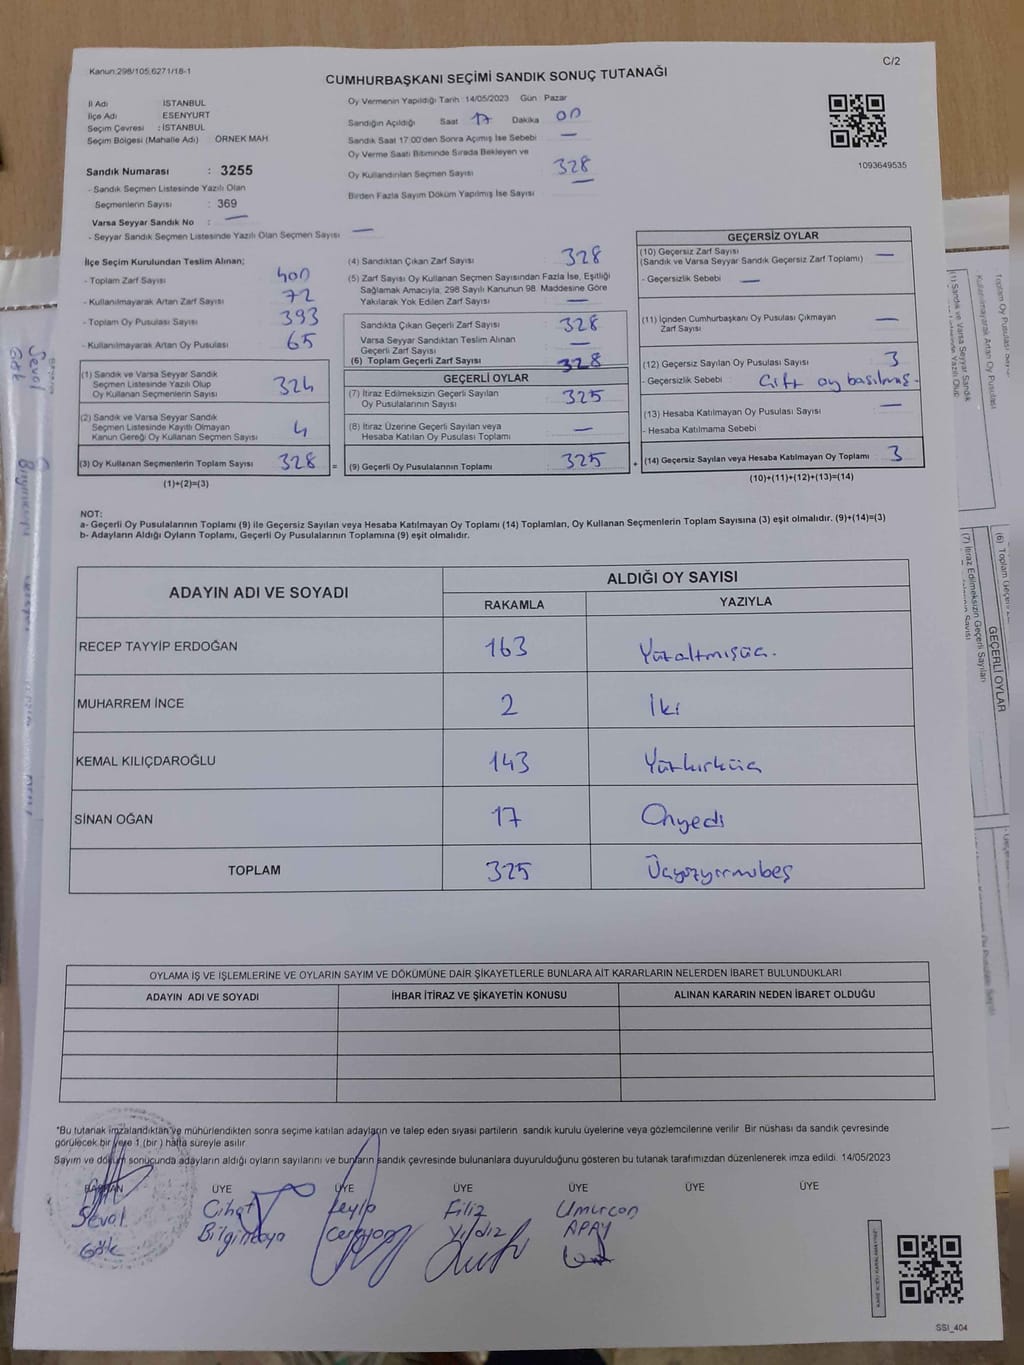 Kanun:298/105,6271/18-1
C/2
CUMHURBAŞKANI SEÇİMİ SANDIK SONUÇ TUTANAĞI
İl Adı İSTANBUL
İlçe Adı ESENYURT
Seçim Çevresi : İSTANBUL
Seçim Bölgesi (Mahalle Adı) ÖRNEK MAH
Sandık Numarası : 3255
- Sandık Seçmen Listesinde Yazılı Olan
Seçmenlerin Sayısı : 369
Varsa Seyyar Sandık No : —
- Seyyar Sandık Seçmen Listesinde Yazılı Olan Seçmen Sayısı —
Oy Vermenin Yapıldığı Tarih :14/05/2023 Gün : Pazar
Sandığın Açıldığı Saat 17 Dakika 00
Sandık Saat 17:00'den Sonra Açılmış İse Sebebi —
Oy Verme Saati Bitiminde Sırada Bekleyen ve
Oy Kullandırılan Seçmen Sayısı 328
Birden Fazla Sayım Döküm Yapılmış İse Sayısı —
1093649535
İlçe Seçim Kurulundan Teslim Alınan;
- Toplam Zarf Sayısı 400
- Kullanılmayarak Artan Zarf Sayısı 72
- Toplam Oy Pusulası Sayısı 393
- Kullanılmayarak Artan Oy Pusulası 65
(1) Sandık ve Varsa Seyyar Sandık
Seçmen Listesinde Yazılı Olup
Oy Kullanan Seçmenlerin Sayısı 324
(2) Sandık ve Varsa Seyyar Sandık
Seçmen Listesinde Kayıtlı Olmayan
Kanun Gereği Oy Kullanan Seçmen Sayısı 4
(3) Oy Kullanan Seçmenlerin Toplam Sayısı 328
(1)+(2)=(3)
(4) Sandıktan Çıkan Zarf Sayısı 328
(5) Zarf Sayısı Oy Kullanan Seçmen Sayısından Fazla İse, Eşitliği
Sağlamak Amacıyla, 298 Sayılı Kanunun 98. Maddesine Göre
Yakılarak Yok Edilen Zarf Sayısı —
Sandıkta Çıkan Geçerli Zarf Sayısı 328
Varsa Seyyar Sandıktan Teslim Alınan
Geçerli Zarf Sayısı —
(6) Toplam Geçerli Zarf Sayısı 328
GEÇERLİ OYLAR
(7) İtiraz Edilmeksizin Geçerli Sayılan
Oy Pusulalarının Sayısı 325
(8) İtiraz Üzerine Geçerli Sayılan veya
Hesaba Katılan Oy Pusulası Toplamı —
= (9) Geçerli Oy Pusulalarının Toplamı 325 +
GEÇERSİZ OYLAR
(10) Geçersiz Zarf Sayısı
(Sandık ve Varsa Seyyar Sandık Geçersiz Zarf Toplamı) —
- Geçersizlik Sebebi —
(11) İçinden Cumhurbaşkanı Oy Pusulası Çıkmayan
Zarf Sayısı —
(12) Geçersiz Sayılan Oy Pusulası Sayısı 3
- Geçersizlik Sebebi Çift oy basılmış.
(13) Hesaba Katılmayan Oy Pusulası Sayısı —
- Hesaba Katılmama Sebebi
(14) Geçersiz Sayılan veya Hesaba Katılmayan Oy Toplamı 3
(10)+(11)+(12)+(13)=(14)
NOT:
a- Geçerli Oy Pusulalarının Toplamı (9) ile Geçersiz Sayılan veya Hesaba Katılmayan Oy Toplamı (14) Toplamları, Oy Kullanan Seçmenlerin Toplam Sayısına (3) eşit olmalıdır. (9)+(14)=(3)
b- Adayların Aldığı Oyların Toplamı, Geçerli Oy Pusulalarının Toplamına (9) eşit olmalıdır.
ADAYIN ADI VE SOYADI
ALDIĞI OY SAYISI
RAKAMLA YAZIYLA
RECEP TAYYİP ERDOĞAN 163 Yüzaltmışüç.
MUHARREM İNCE 2 İki
KEMAL KILIÇDAROĞLU 143 Yüzkırküç
SİNAN OĞAN 17 Onyedi
TOPLAM 325 Üçyüzyirmibeş
OYLAMA İŞ VE İŞLEMLERİNE VE OYLARIN SAYIM VE DÖKÜMÜNE DAİR ŞİKAYETLERLE BUNLARA AİT KARARLARIN NELERDEN İBARET BULUNDUKLARI
ADAYIN ADI VE SOYADI İHBAR İTİRAZ VE ŞİKAYETİN KONUSU ALINAN KARARIN NEDEN İBARET OLDUĞU
*Bu tutanak imzalandıktan ve mühürlendikten sonra seçime katılan adayların ve talep eden siyasi partilerin sandık kurulu üyelerine veya gözlemcilerine verilir. Bir nüshası da sandık çevresinde
görülecek bir yere 1 (bir ) hafta süreyle asılır.
Sayım ve döküm sonucunda adayların aldığı oyların sayılarını ve bunların sandık çevresinde bulunanlara duyurulduğunu gösteren bu tutanak tarafımızdan düzenlenerek imza edildi. 14/05/2023
BAŞKAN ÜYE ÜYE ÜYE ÜYE ÜYE ÜYE
Seval Cihat Zeyip Filiz Umurcan
Gök Yıldız APAY
SSI_404